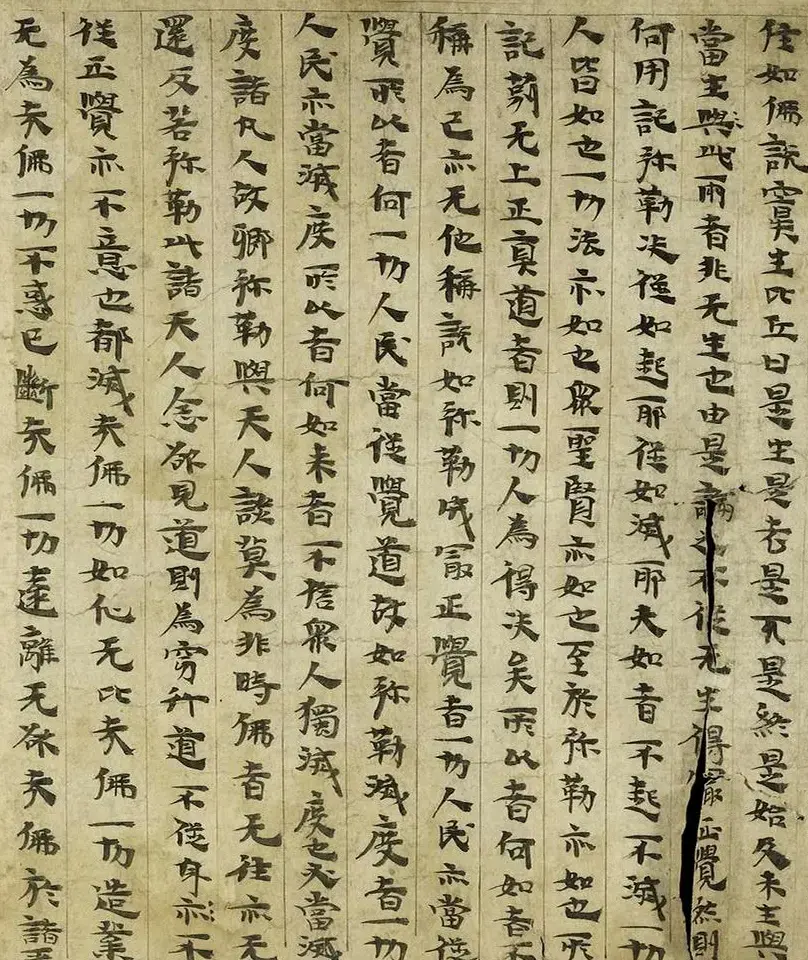 住如佛說實生比丘曰是生是老是死是終是始及未生與
當生與此兩者非无生也由是論之不從无生得最正覺然則
何用記弥勒決從如起耶從如滅耶夫如者不起不滅一切
人皆如也一切法亦如也眾聖賢亦如也至於弥勒亦如也所
記莂无上正真道者則一切人為得決矣所以者何如者不
稱為己亦无他稱說如弥勒成最正覺者一切人民亦當從
覺所以者何一切人民當從覺道故如弥勒滅度者一切
人民亦當滅度所以者何如来者不捨眾人獨滅度也必當滅
度諸凡人故卿弥勒與天人談莫為非時佛者无往亦无
還反若弥勒此諸天人念欲見道則為道不從身亦不
從正覺亦不意也都滅夫佛一切如化无比夫佛一切造業
无為夫佛一切不惑已斷夫佛一切遠離无欲夫佛於諸